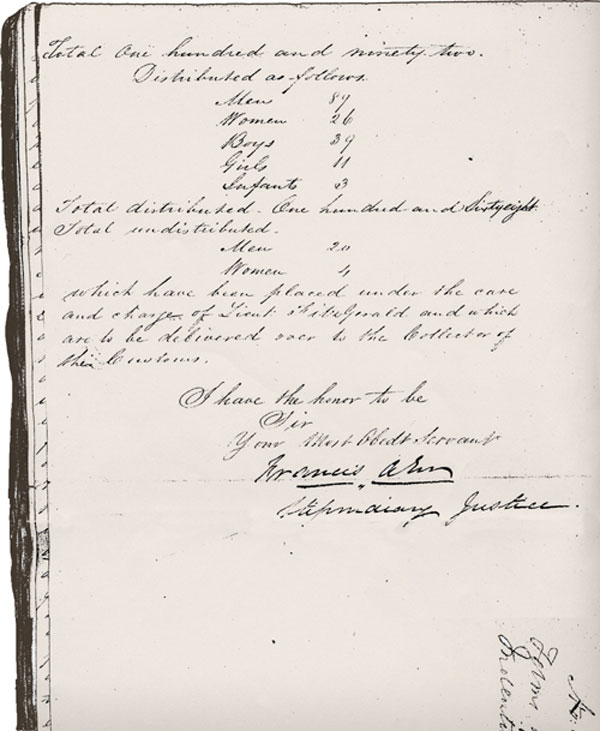 Total One hundred and ninety two.
Distributed as follows
Men 89
Women 26
Boys 39
Girls 11
Infants 3
Total distributed. One hundred and Sixtyeight.
Total undistributed.
Men 20
Women 4
which have been placed under the care
and charge of Lieut FitzGerald and which
are to be delivered over to the Collector of
the Customs.
I have the honor to be
Sir
Your Most Obedt Servant
Francis
Justice.
Terms